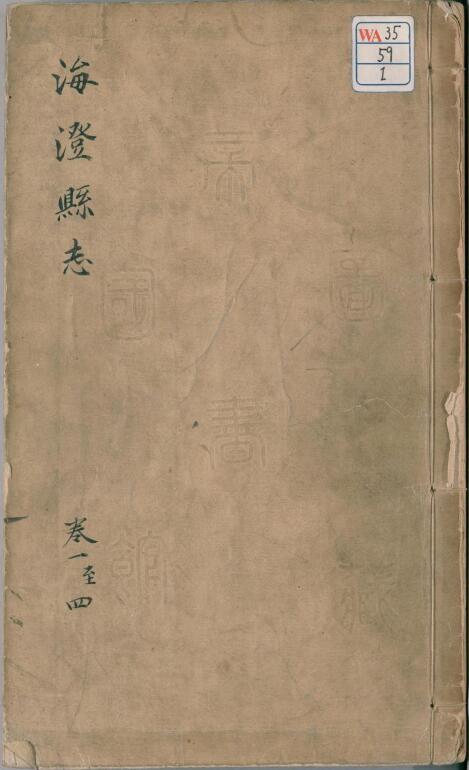 海澄縣志
卷一至四
WA35
59
1